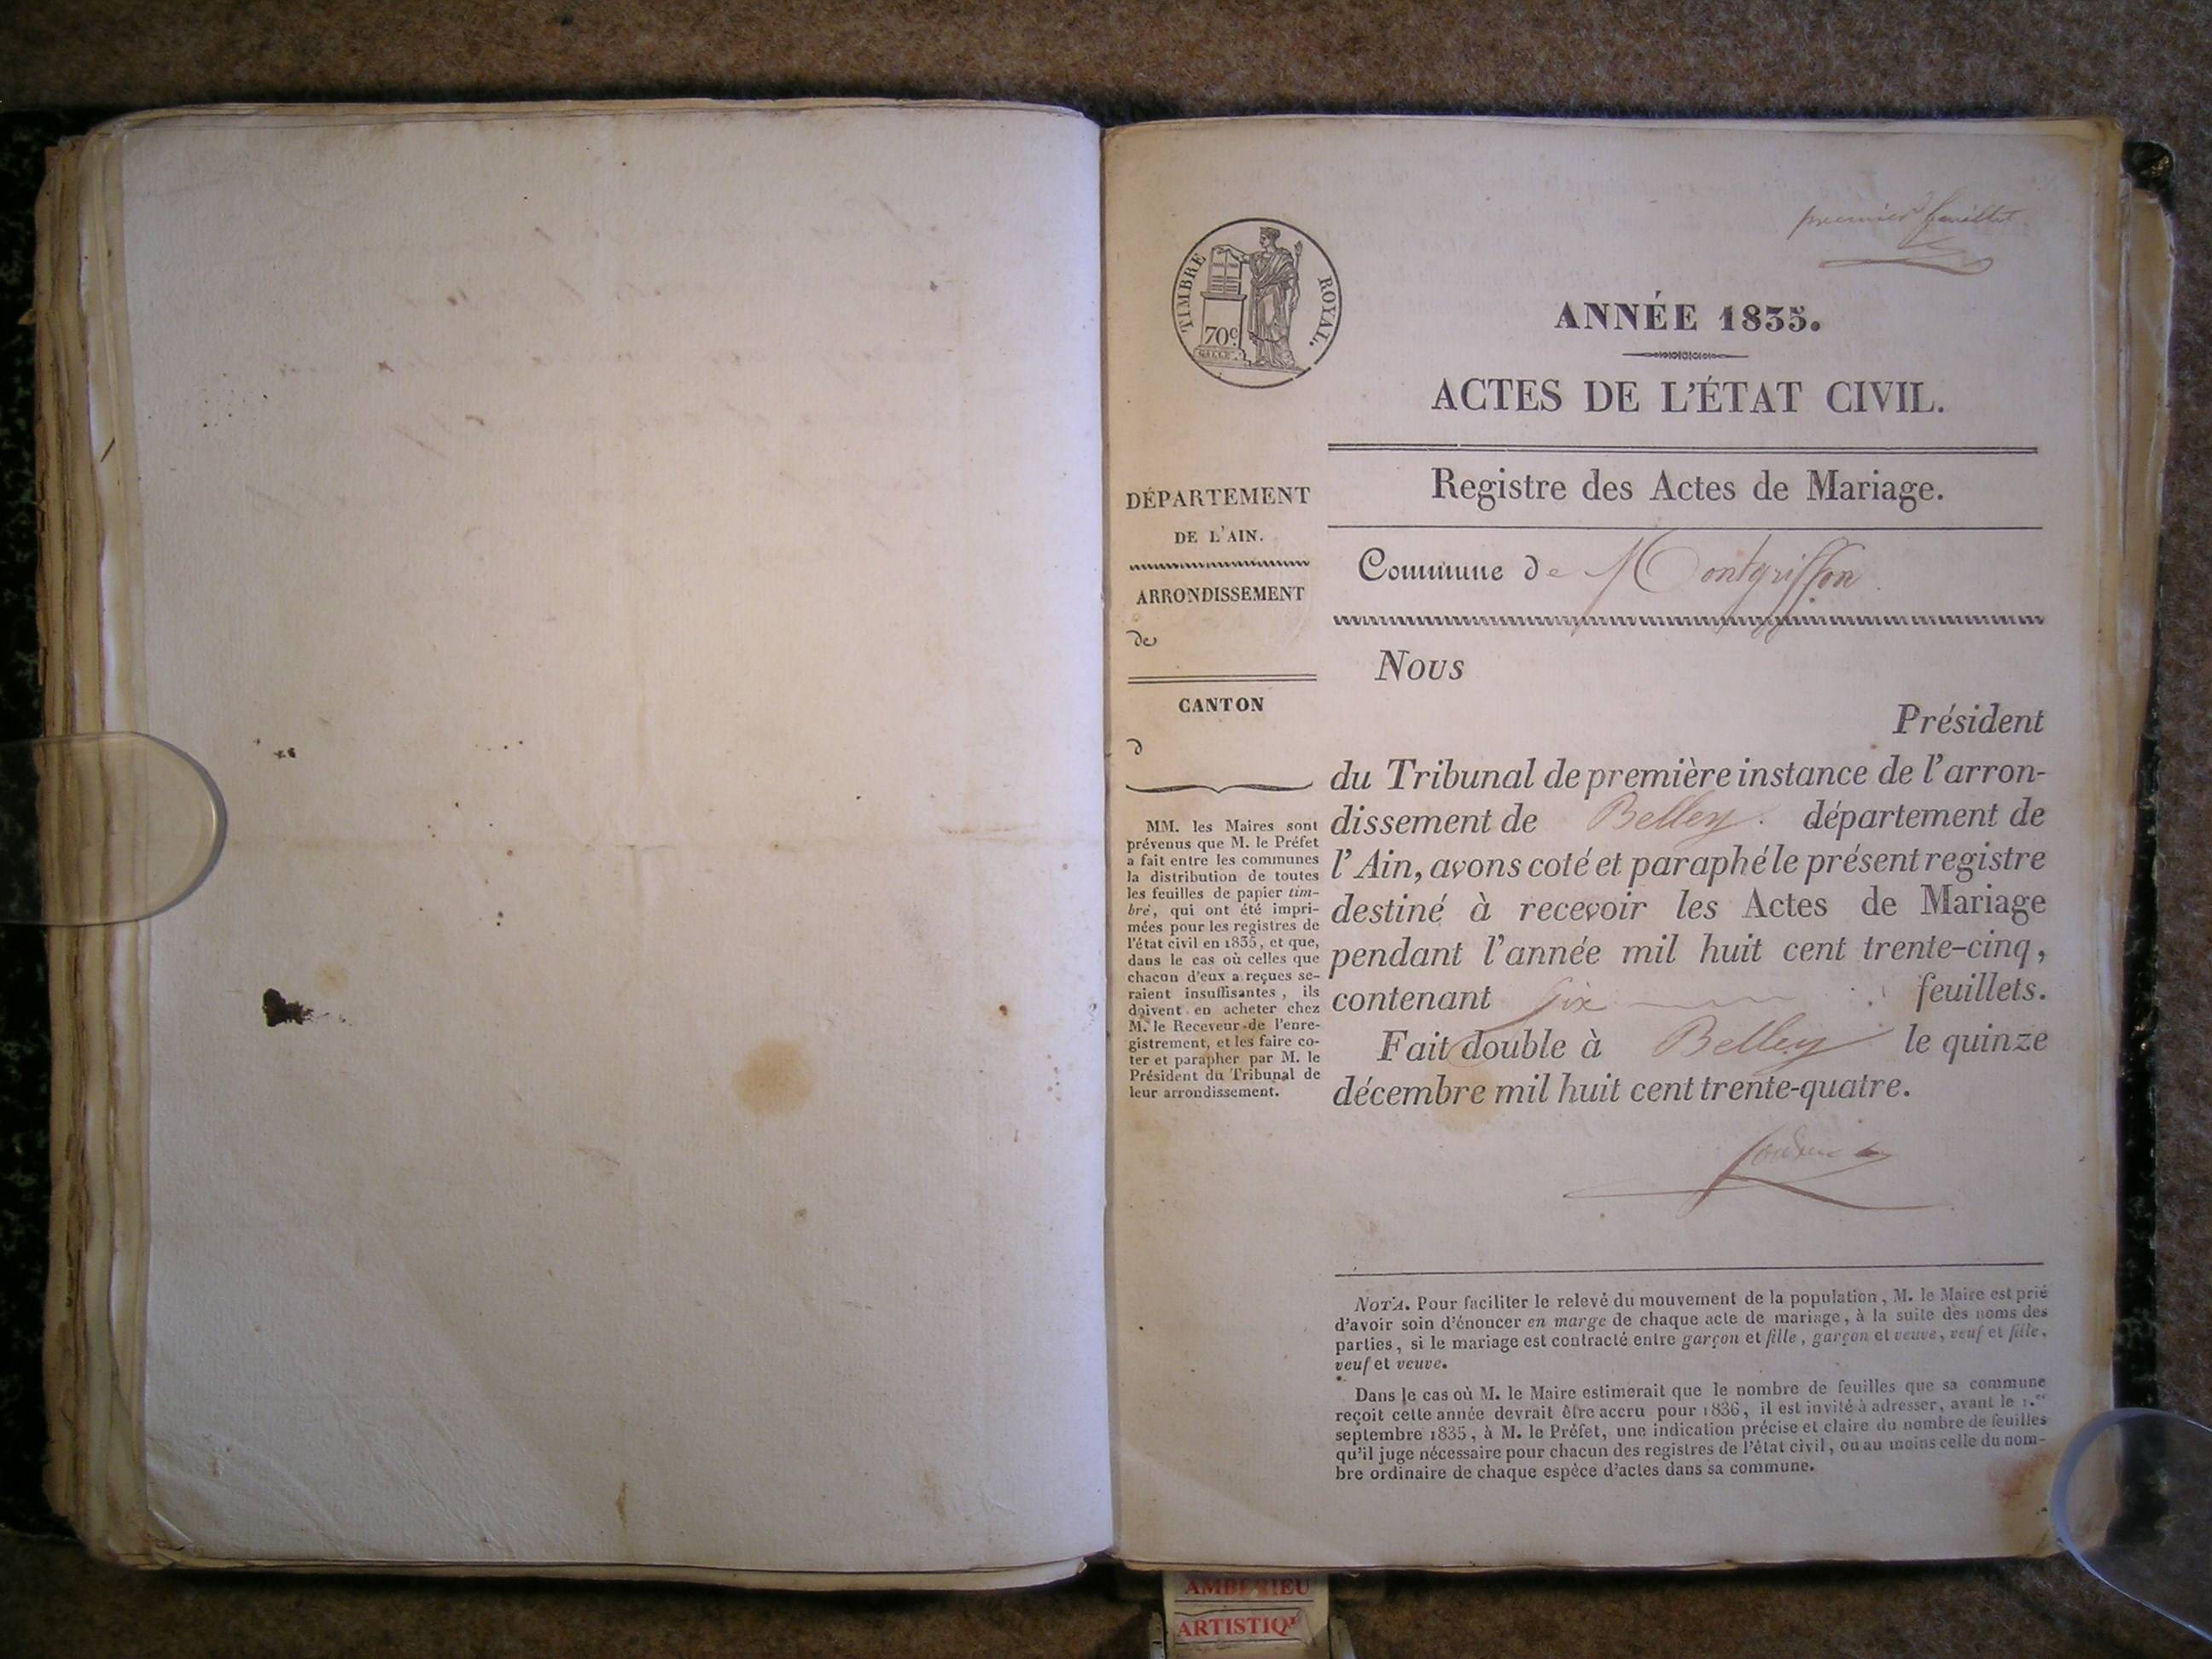 premier feuillet
TIMBRE ROYAL.
70c
GALLE.
ANNÉE 1835.
ACTES DE L'ÉTAT CIVIL.
Registre des Actes de Mariage.
Commune de Montgriffon
DÉPARTEMENT
DE L'AIN.
ARRONDISSEMENT
de
CANTON
d
MM. les Maires sont
prévenus que M. le Préfet
a fait entre les communes
la distribution de toutes
les feuilles de papier tim-
bré, qui ont été impri-
mées pour les registres de
l'état civil en 1835, et que,
dans le cas où celles que
chacun d'eux a reçues se-
raient insuffisantes, ils
doivent en acheter chez
M. le Receveur de l'enre-
gistrement, et les faire co-
ter et parapher par M. le
Président du Tribunal de
leur arrondissement.
Nous
Président
du Tribunal de première instance de l'arron-
dissement de Belley. département de
l'Ain, avons coté et paraphé le présent registre
destiné à recevoir les Actes de Mariage
pendant l'année mil huit cent trente-cinq,
contenant Six feuillets.
Fait double à Belley le quinze
décembre mil huit cent trente-quatre.
NOTA. Pour faciliter le relevé du mouvement de la population, M. le Maire est prié
d'avoir soin d'énoncer en marge de chaque acte de mariage, à la suite des noms des
parties, si le mariage est contracté entre garçon et fille, garçon et veuve, veuf et fille,
veuf et veuve.
Dans le cas où M. le Maire estimerait que le nombre de feuilles que sa commune
reçoit cette année devrait être accru pour 1836, il est invité à adresser, avant le 1.er
septembre 1835, à M. le Préfet, une indication précise et claire du nombre de feuilles
qu'il juge nécessaire pour chacun des registres de l'état civil, ou au moins celle du nom-
bre ordinaire de chaque espèce d'actes dans sa commune.
AMBERIEU
ARTISTIQU